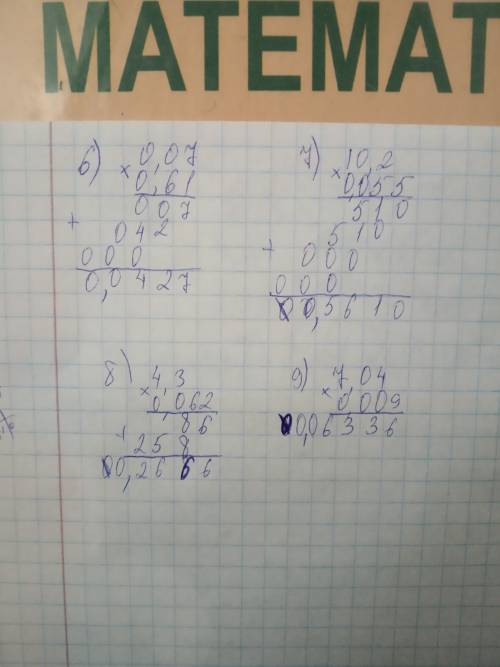 МАТЕМАТ
6) 0,07
× 0,61
0 0 7
+ 0 4 2
0 0 0
0,0 4 2 7
7) 10,2
× 0,055
5 1 0
5 1 0
+ 0 0 0
0 0 0
0 0,5 6 1 0
8) 4,3
× 0,062
8 6
+ 2 5 8
0 0,2 6 6 6
9) 7,04
× 0,009
0 0,0 6 3 3 6